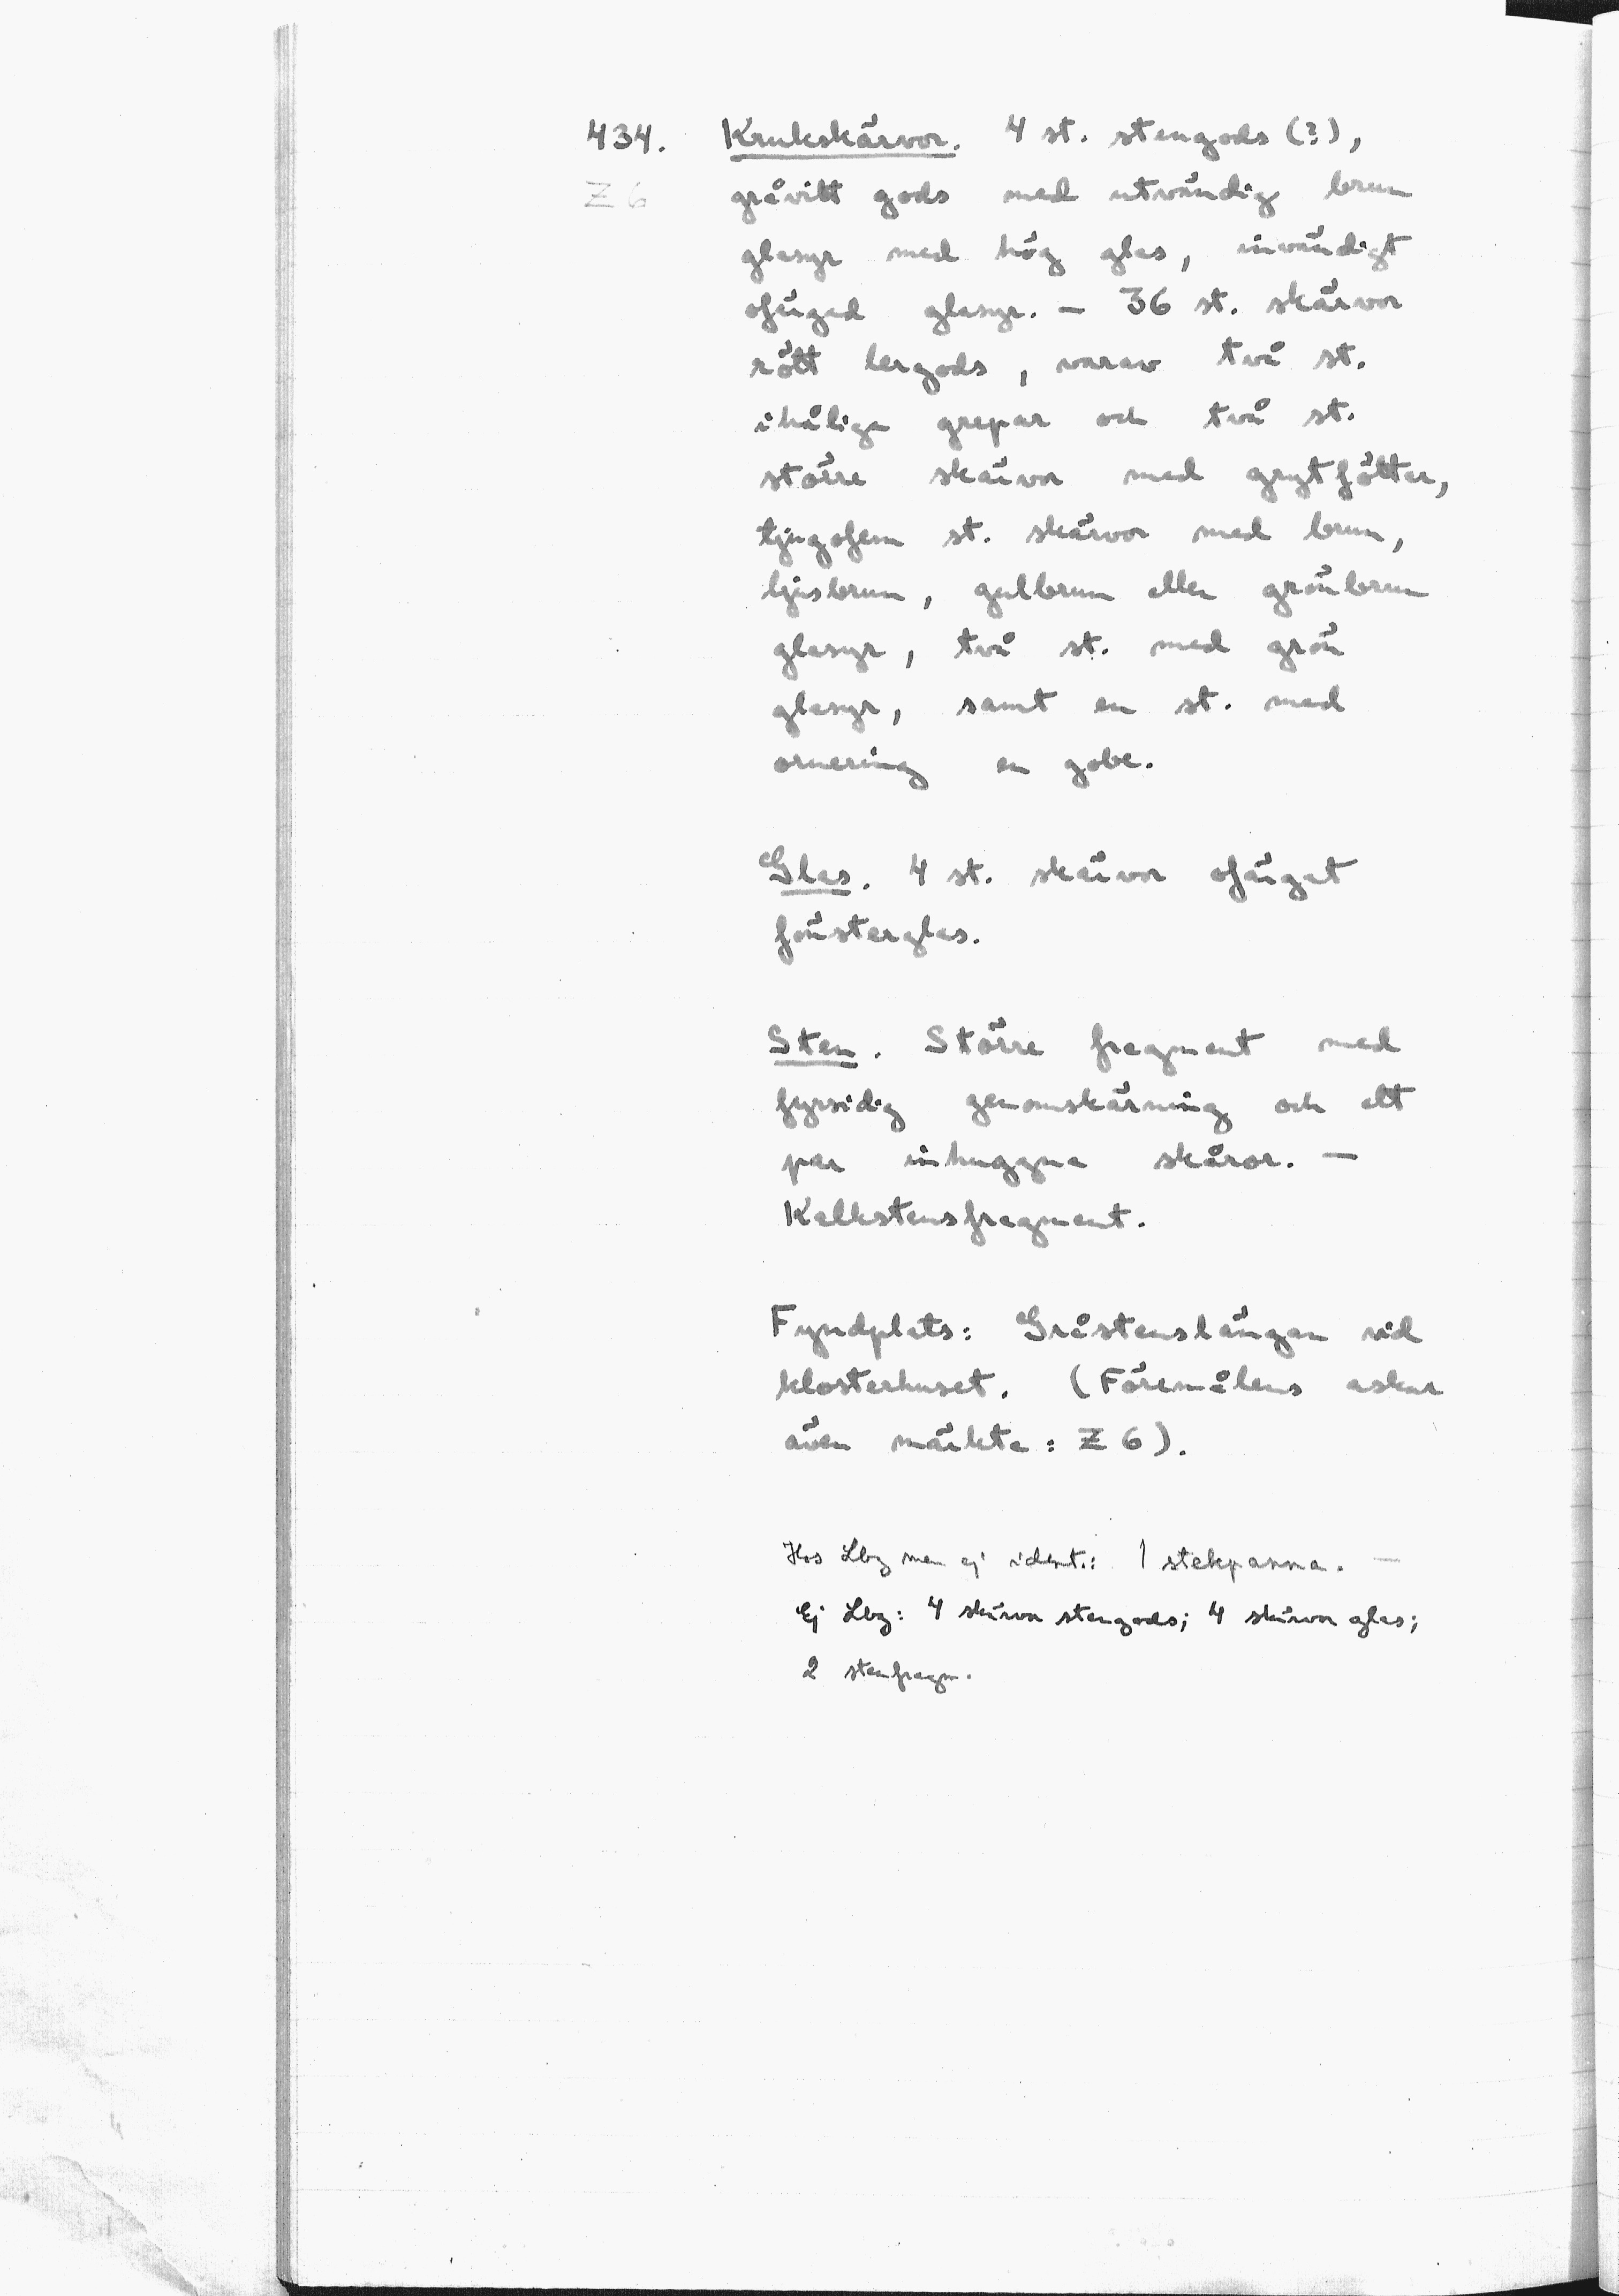 434. Krukskärvor. 4 st. stengods (?),
Z 6 gråvitt gods med utvändig brun
glasyr med hög glas, invändigt
ofärgad glasyr. – 36 st. skärvor
rött lergods, varav två st.
ihåliga grepar och två st.
större skärvor med grytfötter,
tjugofem st. skärvor med brun,
ljusbrun, gulbrun eller grönbrun
glasyr, två st. med grön
glasyr, samt en st. med
ornering en gobe.
Glas. 4 st. skärvor ofärgat
fönsterglas.
Sten. Större fragment med
fyrsidig genomskärning och ett
par inhuggna skåror. –
Kalkstensfragment.
Fyndplats: Gråstenslängan vid
klosterhuset. (Föremålens askar
även märkta: Z 6).
Hos Lbg men ej ident.: 1 stekpanna. –
Ej Lbg: 4 skärvor stengods; 4 skärvor glas;
2 stenfragm.